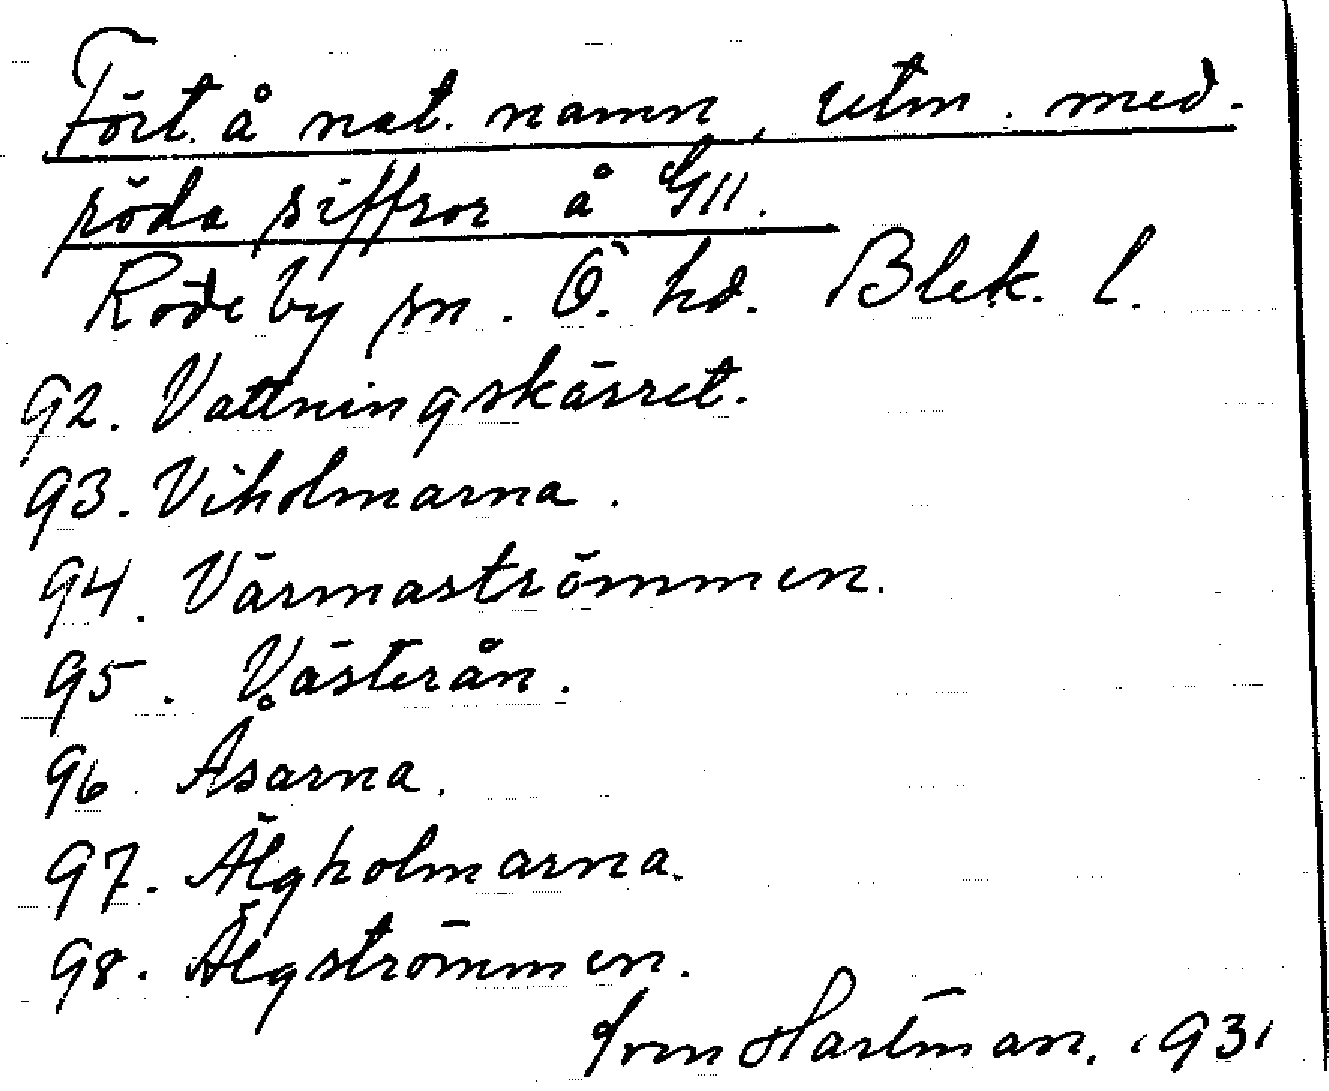 Fört. å nat. namn, utm. med.
röda siffror å GII.
Rödeby sn. Ö. hd. Blek. l.
92. Vattningskärret.
93. Viholmarna.
94. Värmaströmmen.
95. Västerån.
96. Åsarna.
97. Älgholmarna.
98. Älgströmmen.
Sven Hartman. 1931